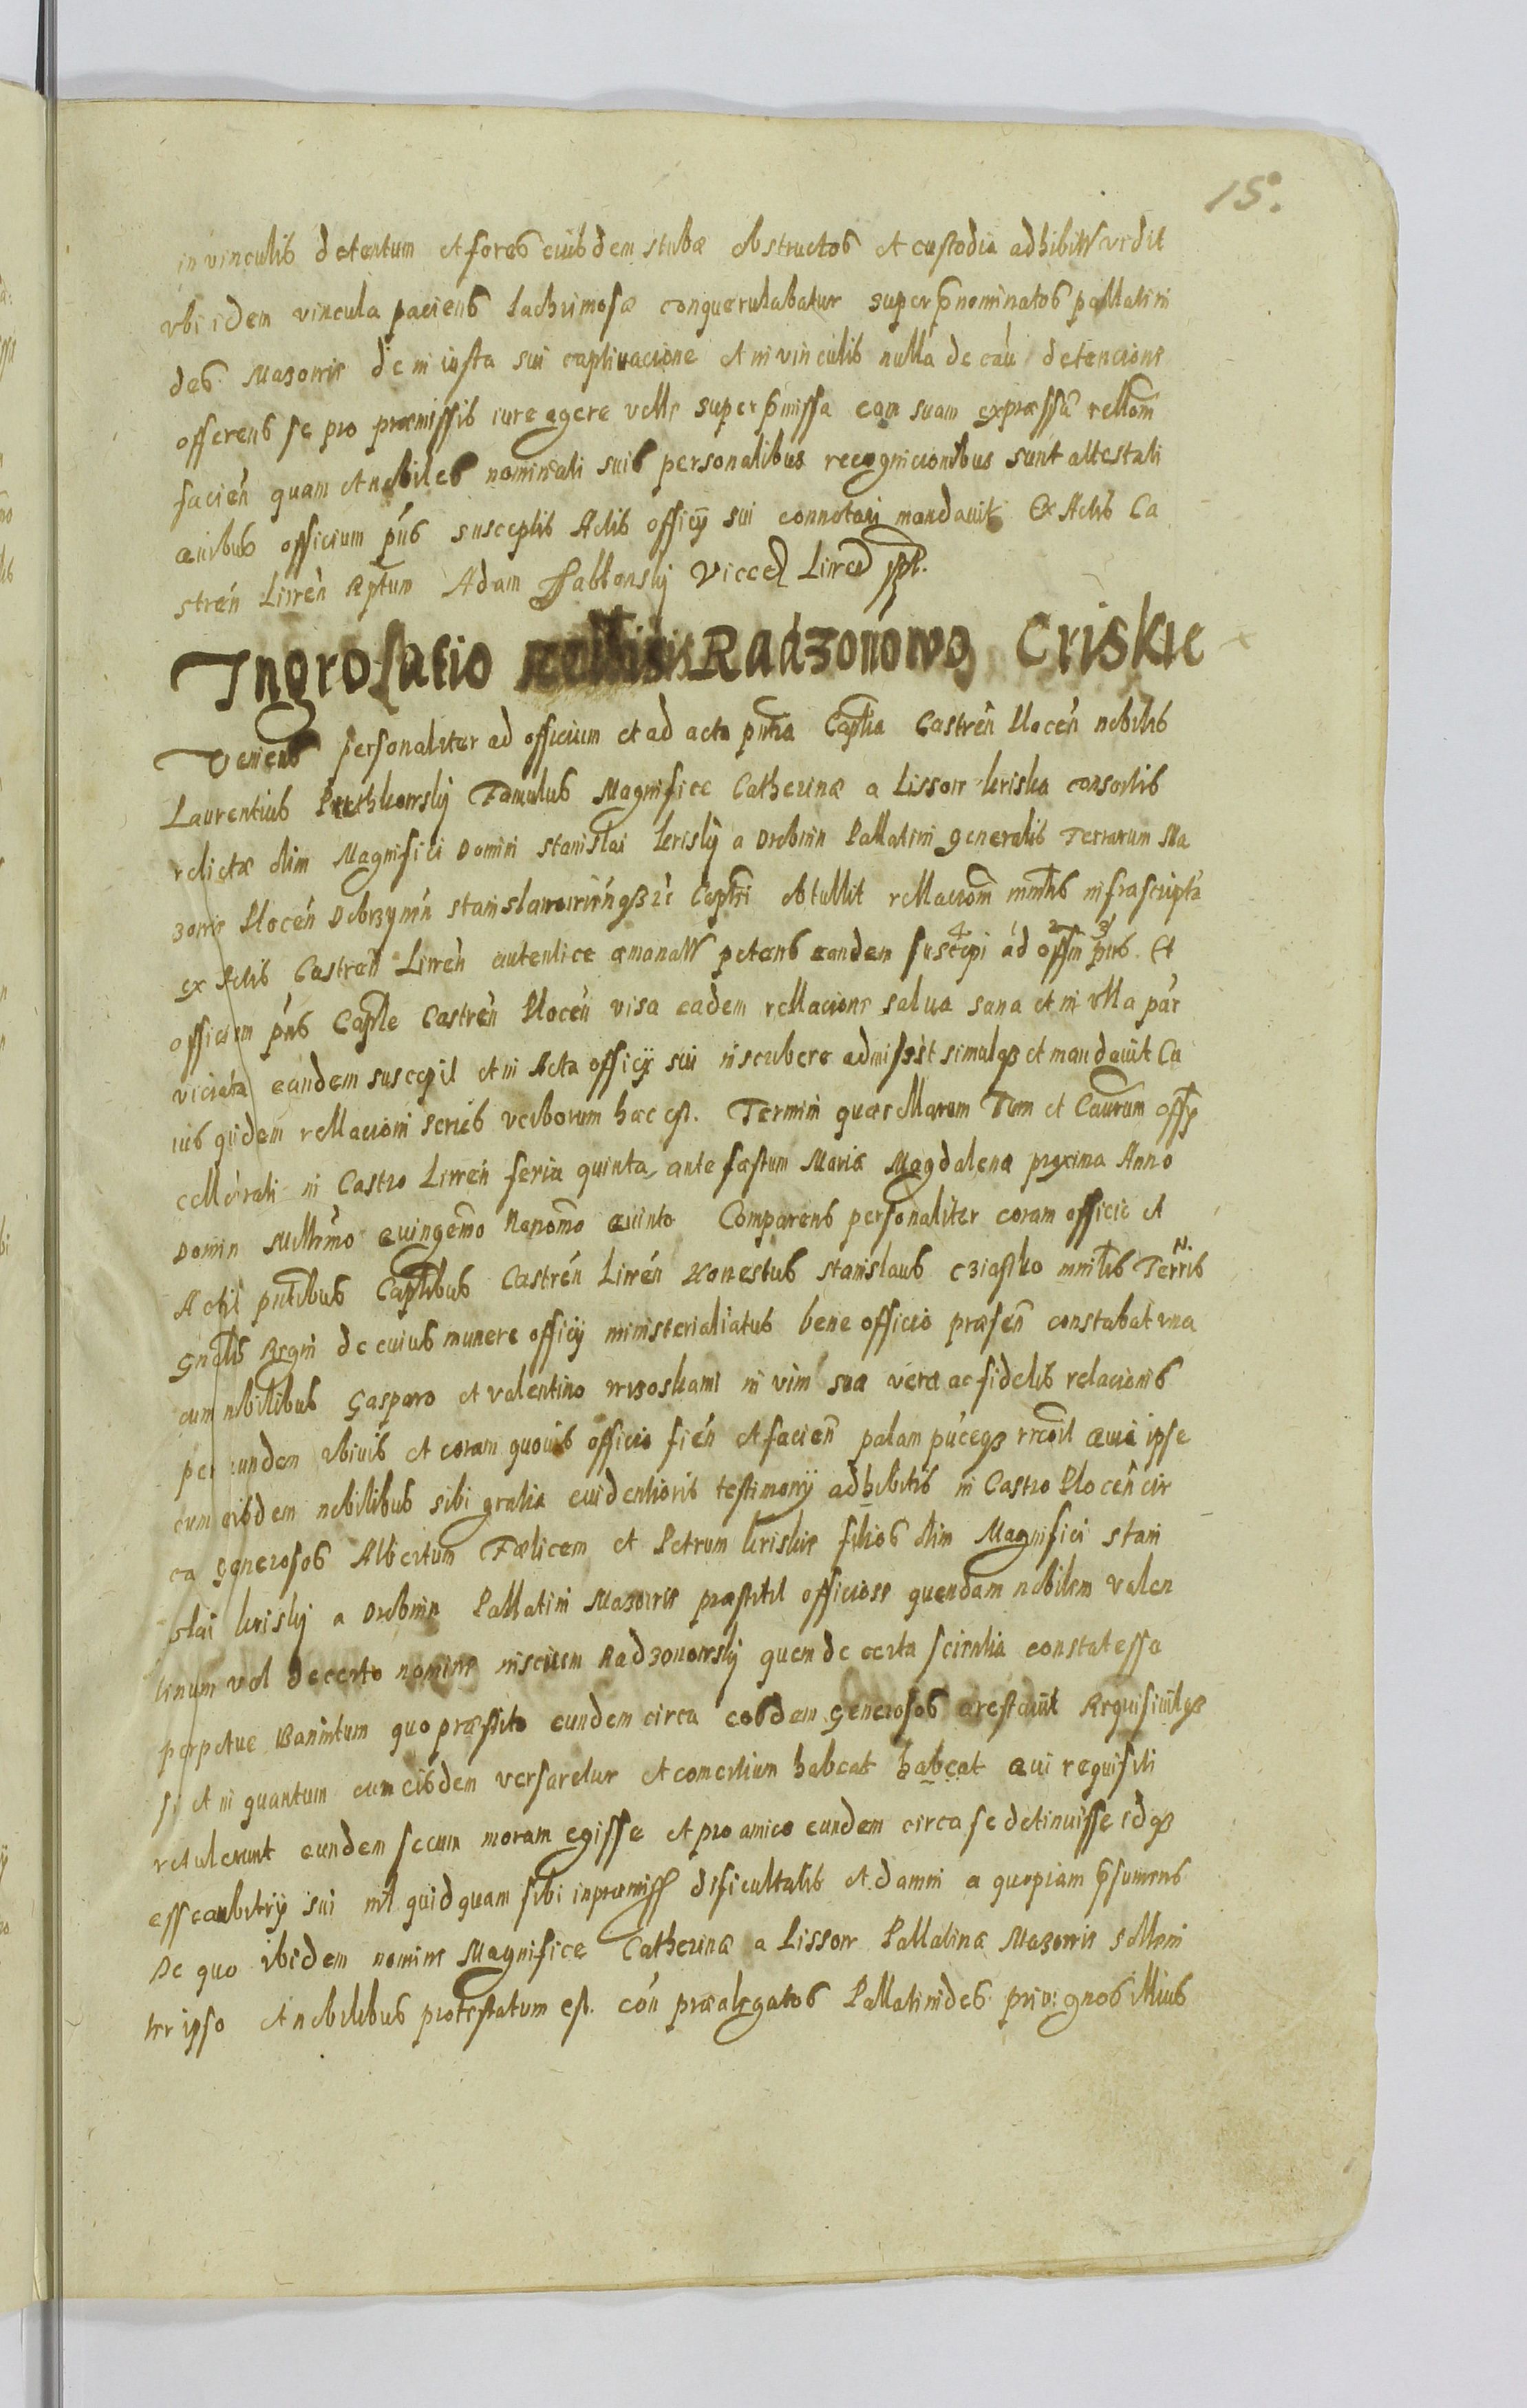 15.
in vinculis detentum et fores eiusdem stubæ obstructos et custodia adhibita vidit
vbi idem vincula paciens lachrimosæ conquerulabatur super p̄nominatos pallatini
des Mazowie de iniusta sui captivacione et in vinculis nulla de cau detencione
offerens se pro præmissis iure agere velle super p̄missa eam suam expressā rellōm
facień quam et nobiles nominati suis personalibus recognicionibus sunt attestati
quibus officium pńs susceptis Actis officij sui connotari mandavit Ex Actis Ca
streń Liweń Rptum Adam Jabłonskj Viceca Liweń
Ingrosatio Radzonowo Criskie
Veniens personaliter ad officium et ad acta pn̄tia Caplia Castreń Ploceń nobilis
Laurentius famulus Magnifice Catherinæ a Lissow kriska consortis
relictæ olim Magnifici Domini Stanislai kriskij a Drobnin Pallatini generalis Terrarum Ma
zowie Ploceń Dobrzyniń Capnēi obtullit rellacionem mn̄tlis infrascripta
ex Actis Castreń Liweń autentice emanatā petens eandem suscepi 4 ad 1 offm 2 pns 3 Et
officium pńs Caple Castreń Ploceń visa eadem rellacione salua sana et in vlla par
viciata eandem suscepit et in Acta officij sui inscribere admisit simulqз et mandavit Cu
ius quidem rellacioni series verborum hæc est. Termini quærellarum Tum et Caurum offij
cellebrati in Castro Liweń feria quinta ante festum Mariæ Magdalenæ proxima Anno
Domini Millimo quingemo Nonomo quinto Comparens personaliter coram officio et
Actis pntibus Captibus Castreń Liweń Honestus Stanislaus Cziastko mntlis Terris
Gnalis Regni de cuius munere officij ministerialiatus bene officio præseń constabat vna
cum nobilibus Gasparo et Valentino Wrzoskami in vim suæ veræ ac fidelis relacionis
per eundem vbiuis et coram quouis officio fień et facień palam puceqз rrcoit quia ipse
cum eisdem nobilibus sibi gratia euidentioris testimonij adhibitis in Castro Ploceń cir
ca generosos Albertum Fœlicem et Petrum kriskie filios olim Magnifici Stani
slai kriskij a Drobnin Pallatini Mazowie præstitit officiose quendam nobilem Valen
tinum vel de certo nomine nisciuem Radzonowskj quem de certa scientia constat esse
perpetue Bannitum quo præstito eundem circa eosdem generosos arestauit Requisiuitqз
si et in quantum cum eisdem versaretur et comertium habeat habeat qui requisiti
retulerunt eundem secum moram egisse et pro amico eundem circa se detinuisse idqз
esse arbitrij sui nil quidquam sibi in præmiss dificultatis et damni a quopiam p̄sumens
De quo ibidem nomine Magnifice Catherinæ a Lissow Pallatinæ Mazowie sollem
ter ipso et nobilibus protestatum est. coń præalegatos Pallatinides privignos illius